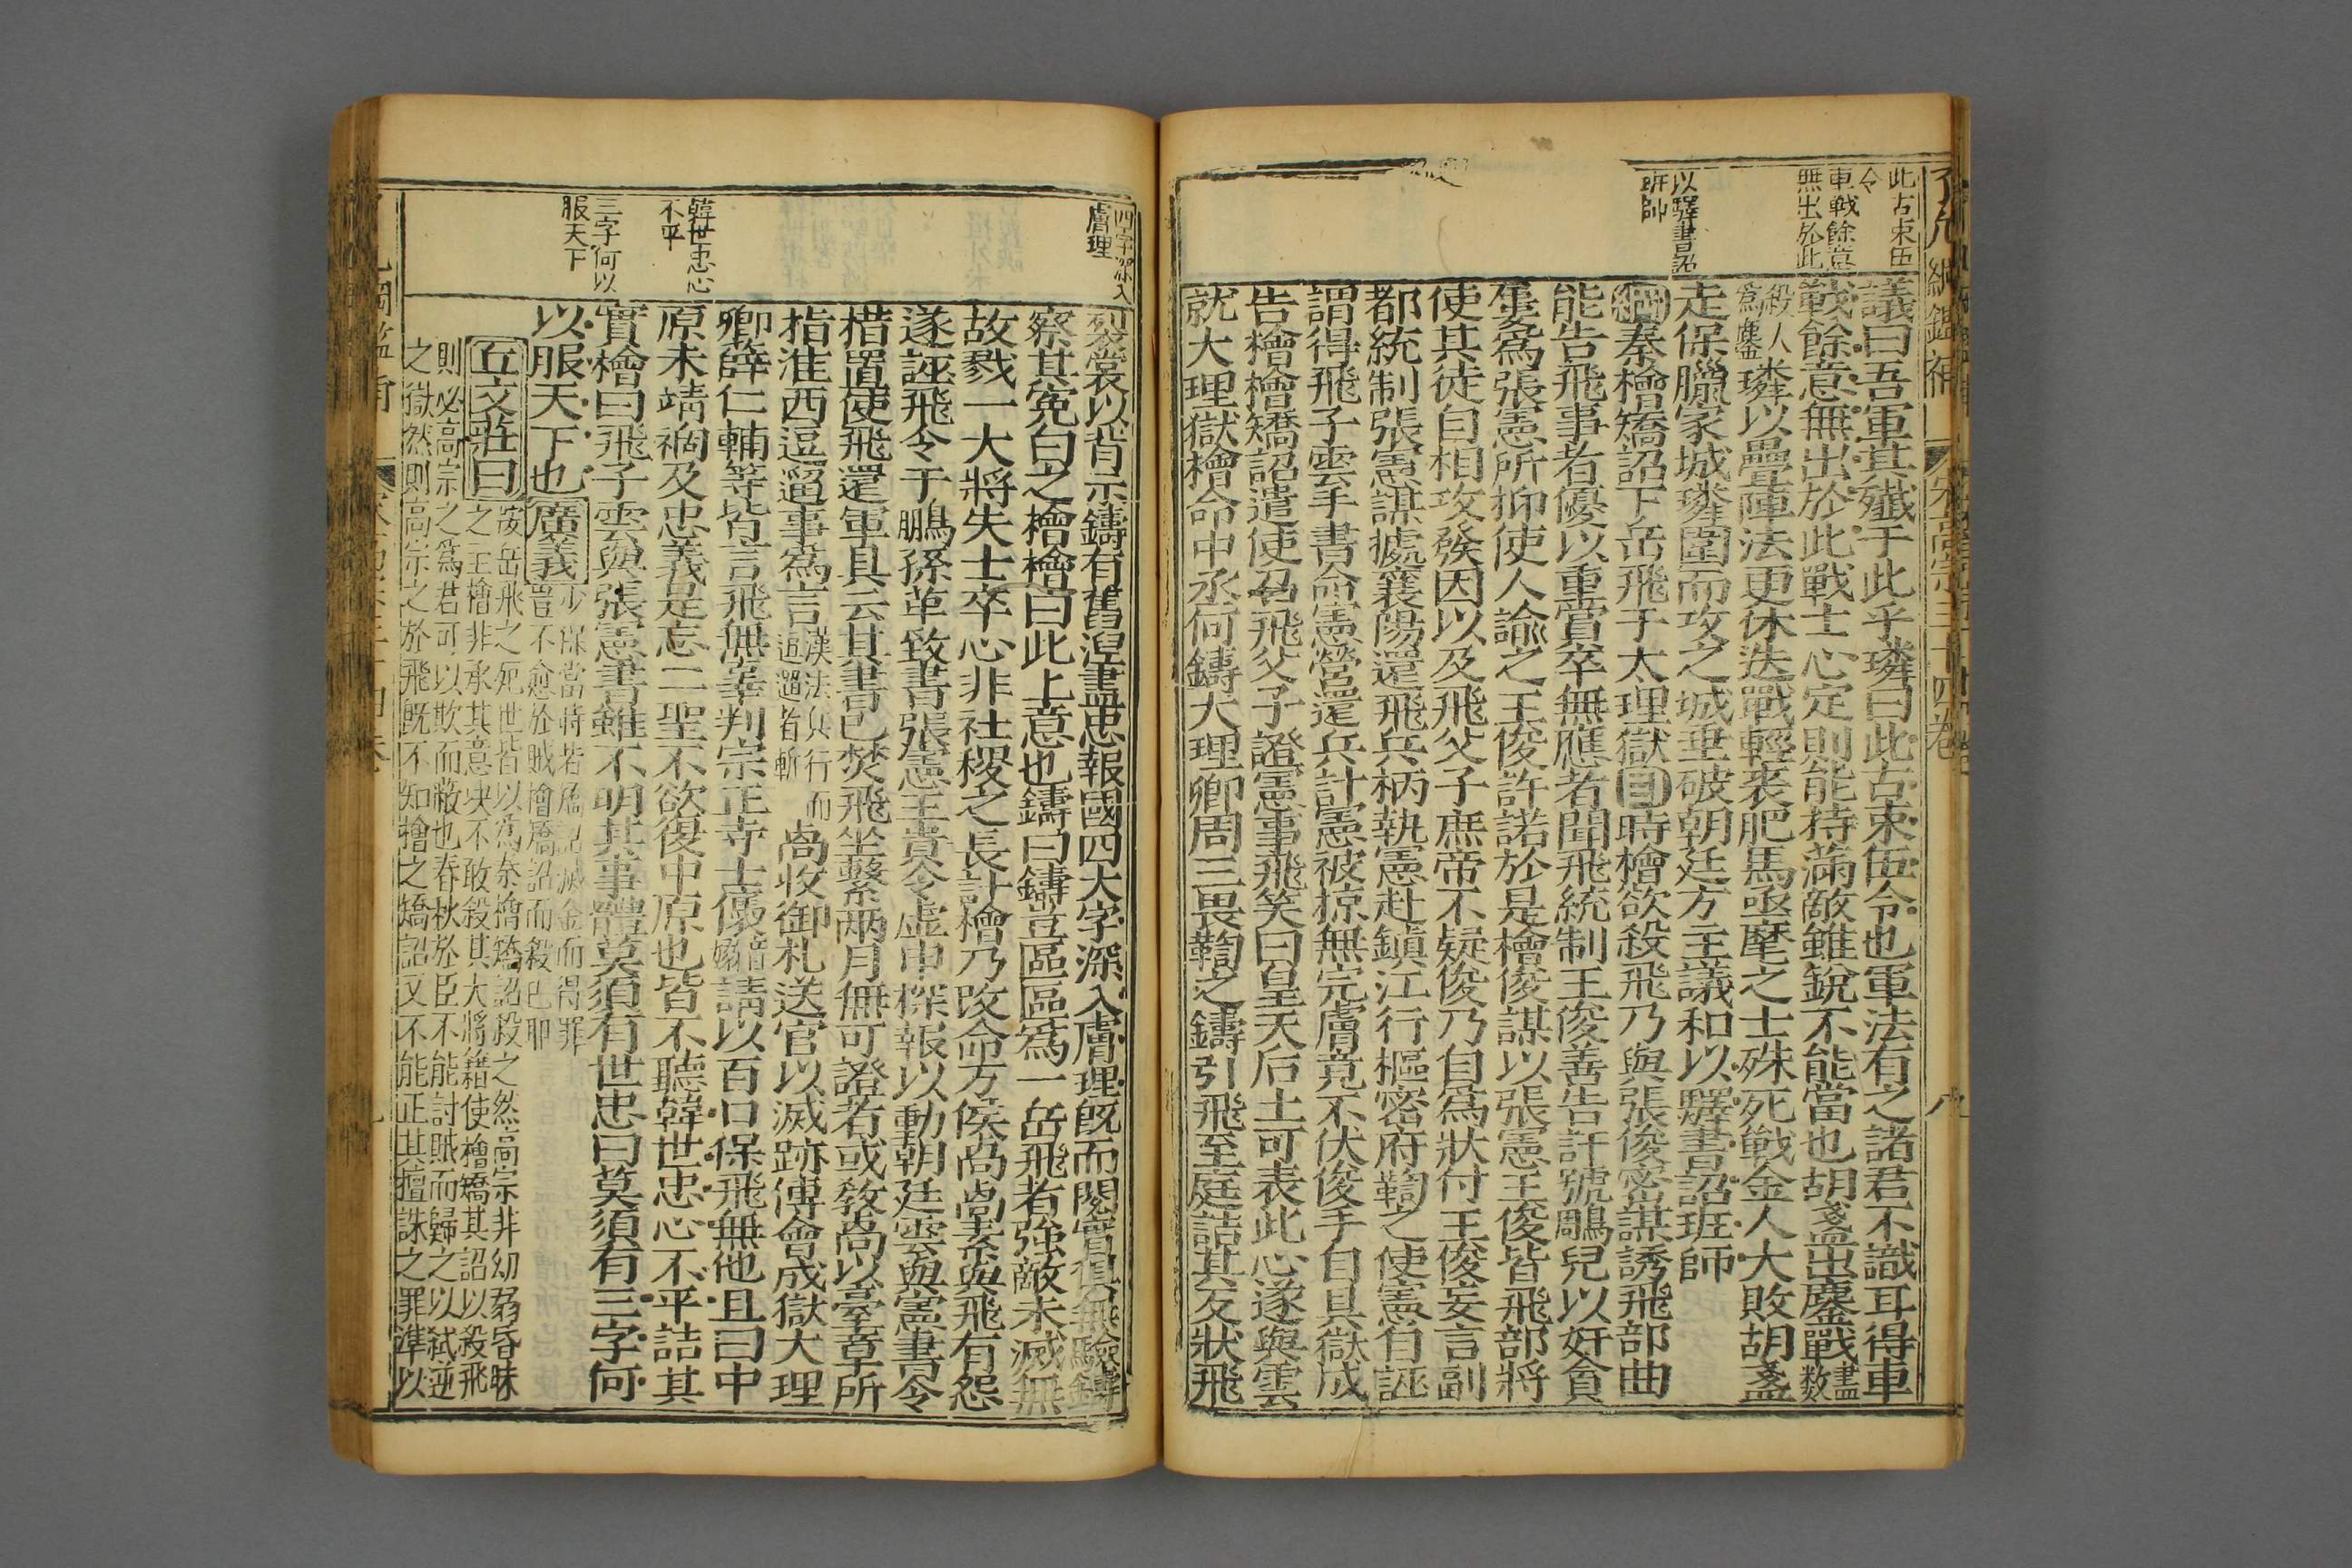 了凡綱鑑補
宋高宗三十四卷
八
此古束伍
令
車戰餘意
無出於此
以驛書詔
班師
議曰吾軍其殲于此乎璘曰此古束伍令也軍法有之諸君不識耳得車
戰餘意無出於此戰士心定則能持滿敵雖銳不能當也胡盞出鏖戰盡數
殺人爲鏖璘以疊陣法更休迭戰輕裘肥馬亟麾之士殊死戰金人大敗胡盞
走保臘家城璘圍而攻之城垂破朝廷方主議和以驛書詔班師
綱秦檜矯詔下岳飛于大理獄目時檜欲殺飛乃與張俊密謀誘飛部曲
能告飛事者優以重賞卒無應者聞飛統制王俊善告訐號鵰兒以奸貪
屢爲張憲所抑使人諭之王俊許諾於是檜俊謀以張憲王俊皆飛部將
使其徒自相攻發因以及飛父子庶帝不疑俊乃自爲狀付王俊妄言副
都統制張憲謀據襄陽還飛兵柄執憲赴鎮江行樞密府鞫之使憲自誣
謂得飛子雲手書命憲營還兵計憲被掠無完膚竟不伏俊手自具獄成
告檜檜矯詔遣使召飛父子證憲事飛笑曰皇天后土可表此心遂與雲
就大理獄檜命中丞何鑄大理卿周三畏鞫之鑄引飛至庭詰其反狀飛
四字深入
膚理
韓世忠心
不平
三字何以
服天下
裂裳以背示鑄有舊涅盡忠報國四大字深入膚理既而閱實俱無驗鑄
察其寃白之檜檜曰此上意也鑄曰鑄豈區區爲一岳飛者強敵未滅無
故戮一大將失士卒心非社稷之長計檜乃改命万俟卨卨素與飛有怨
遂誣飛令于鵬孫革致書張憲王貴令虛申探報以動朝廷雲與憲書令
措置使飛還軍具云其書已焚飛坐繫兩月無可證者或教卨以臺章所
指淮西逗遛事爲言漢法兵行而逗遛者斬卨收御札送官以滅跡傅會成獄大理
卿薛仁輔等皆言飛無辜判宗正寺士㒟請以百口保飛無他且曰中
原未靖禍及忠義是忘二聖不欲復中原也皆不聽韓世忠心不平詰其
實檜曰飛子雲與張憲書雖不明其事體莫須有世忠曰莫須有三字何
以服天下也廣義少保當時若矯詔滅金而得罪豈不愈於賊檜矯詔而殺已耶
丘文莊曰按岳飛之死世皆以爲秦檜矯詔殺之然高宗非幼弱昏昧
之主檜非承其意决不敢殺其大將籍使檜矯其詔以殺飛
則必高宗之爲君可以欺而蔽也春秋於臣不能討賊而歸之以弑逆
之獄然則高宗之於飛既不知檜之矯詔又不能正其擅誅之罪準以